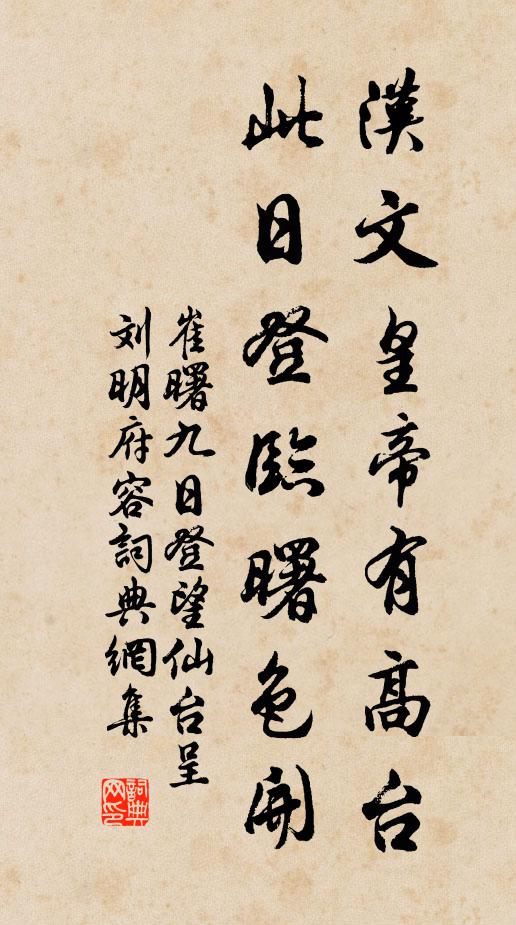 漢文皇帝有高台
此日登臨曙色開
崔曙九日登望仙台呈
刘明府容詞典網集
詞典
网印